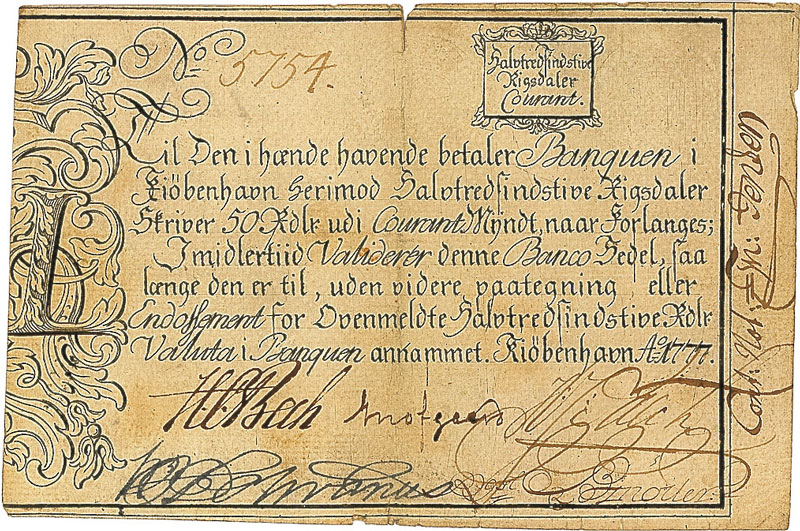 No 5754.
Halvtredsindstive
Rigsdaler
Courant.
Til Den i hænde havende betaler Banquen i
Kiöbenhavn herimod Halvtredsindstive Rigsdaler
Skriver 50 Rdlr udi Courant Myndt, naar Forlanges;
Imidlertiid Validerer denne Banco Sedel, saa
længe den er til, uden videre paategning eller
Endossement for Ovenmeldte Halvtredsindstive Rdlr
Valuta i Banquen annammet. Kiöbenhavn Ao. 1777.
L